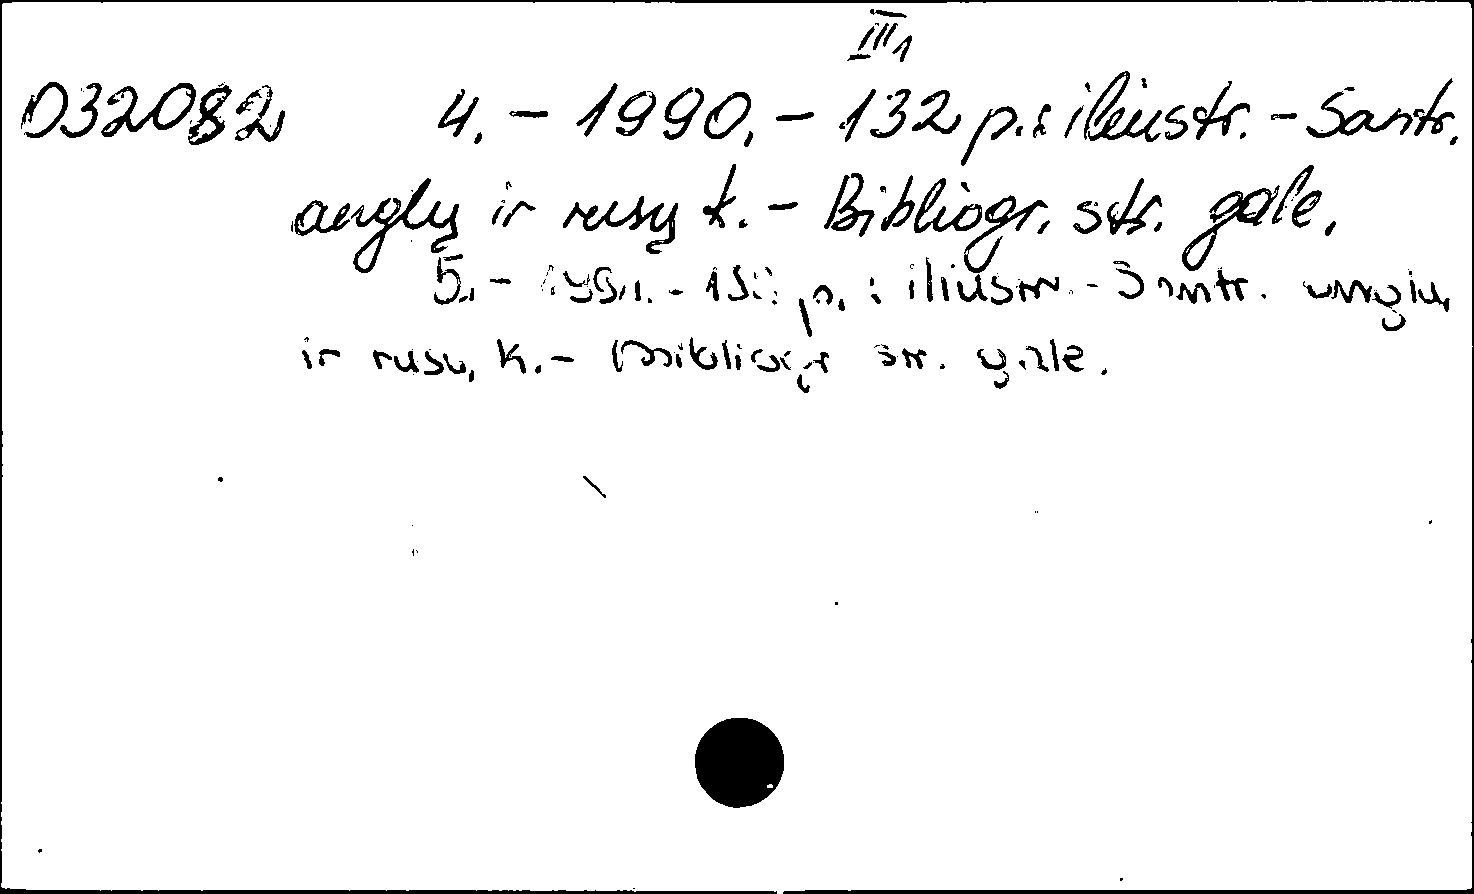 III1
032082 4. – 1990. – 132 p.: iliustr. – Santr.
anglų ir rusų k. – Bibliogr. str. gale.
5. – p. : iliustr. – Santr. anglų
ir rusų k. – Bibliogr str. gale.